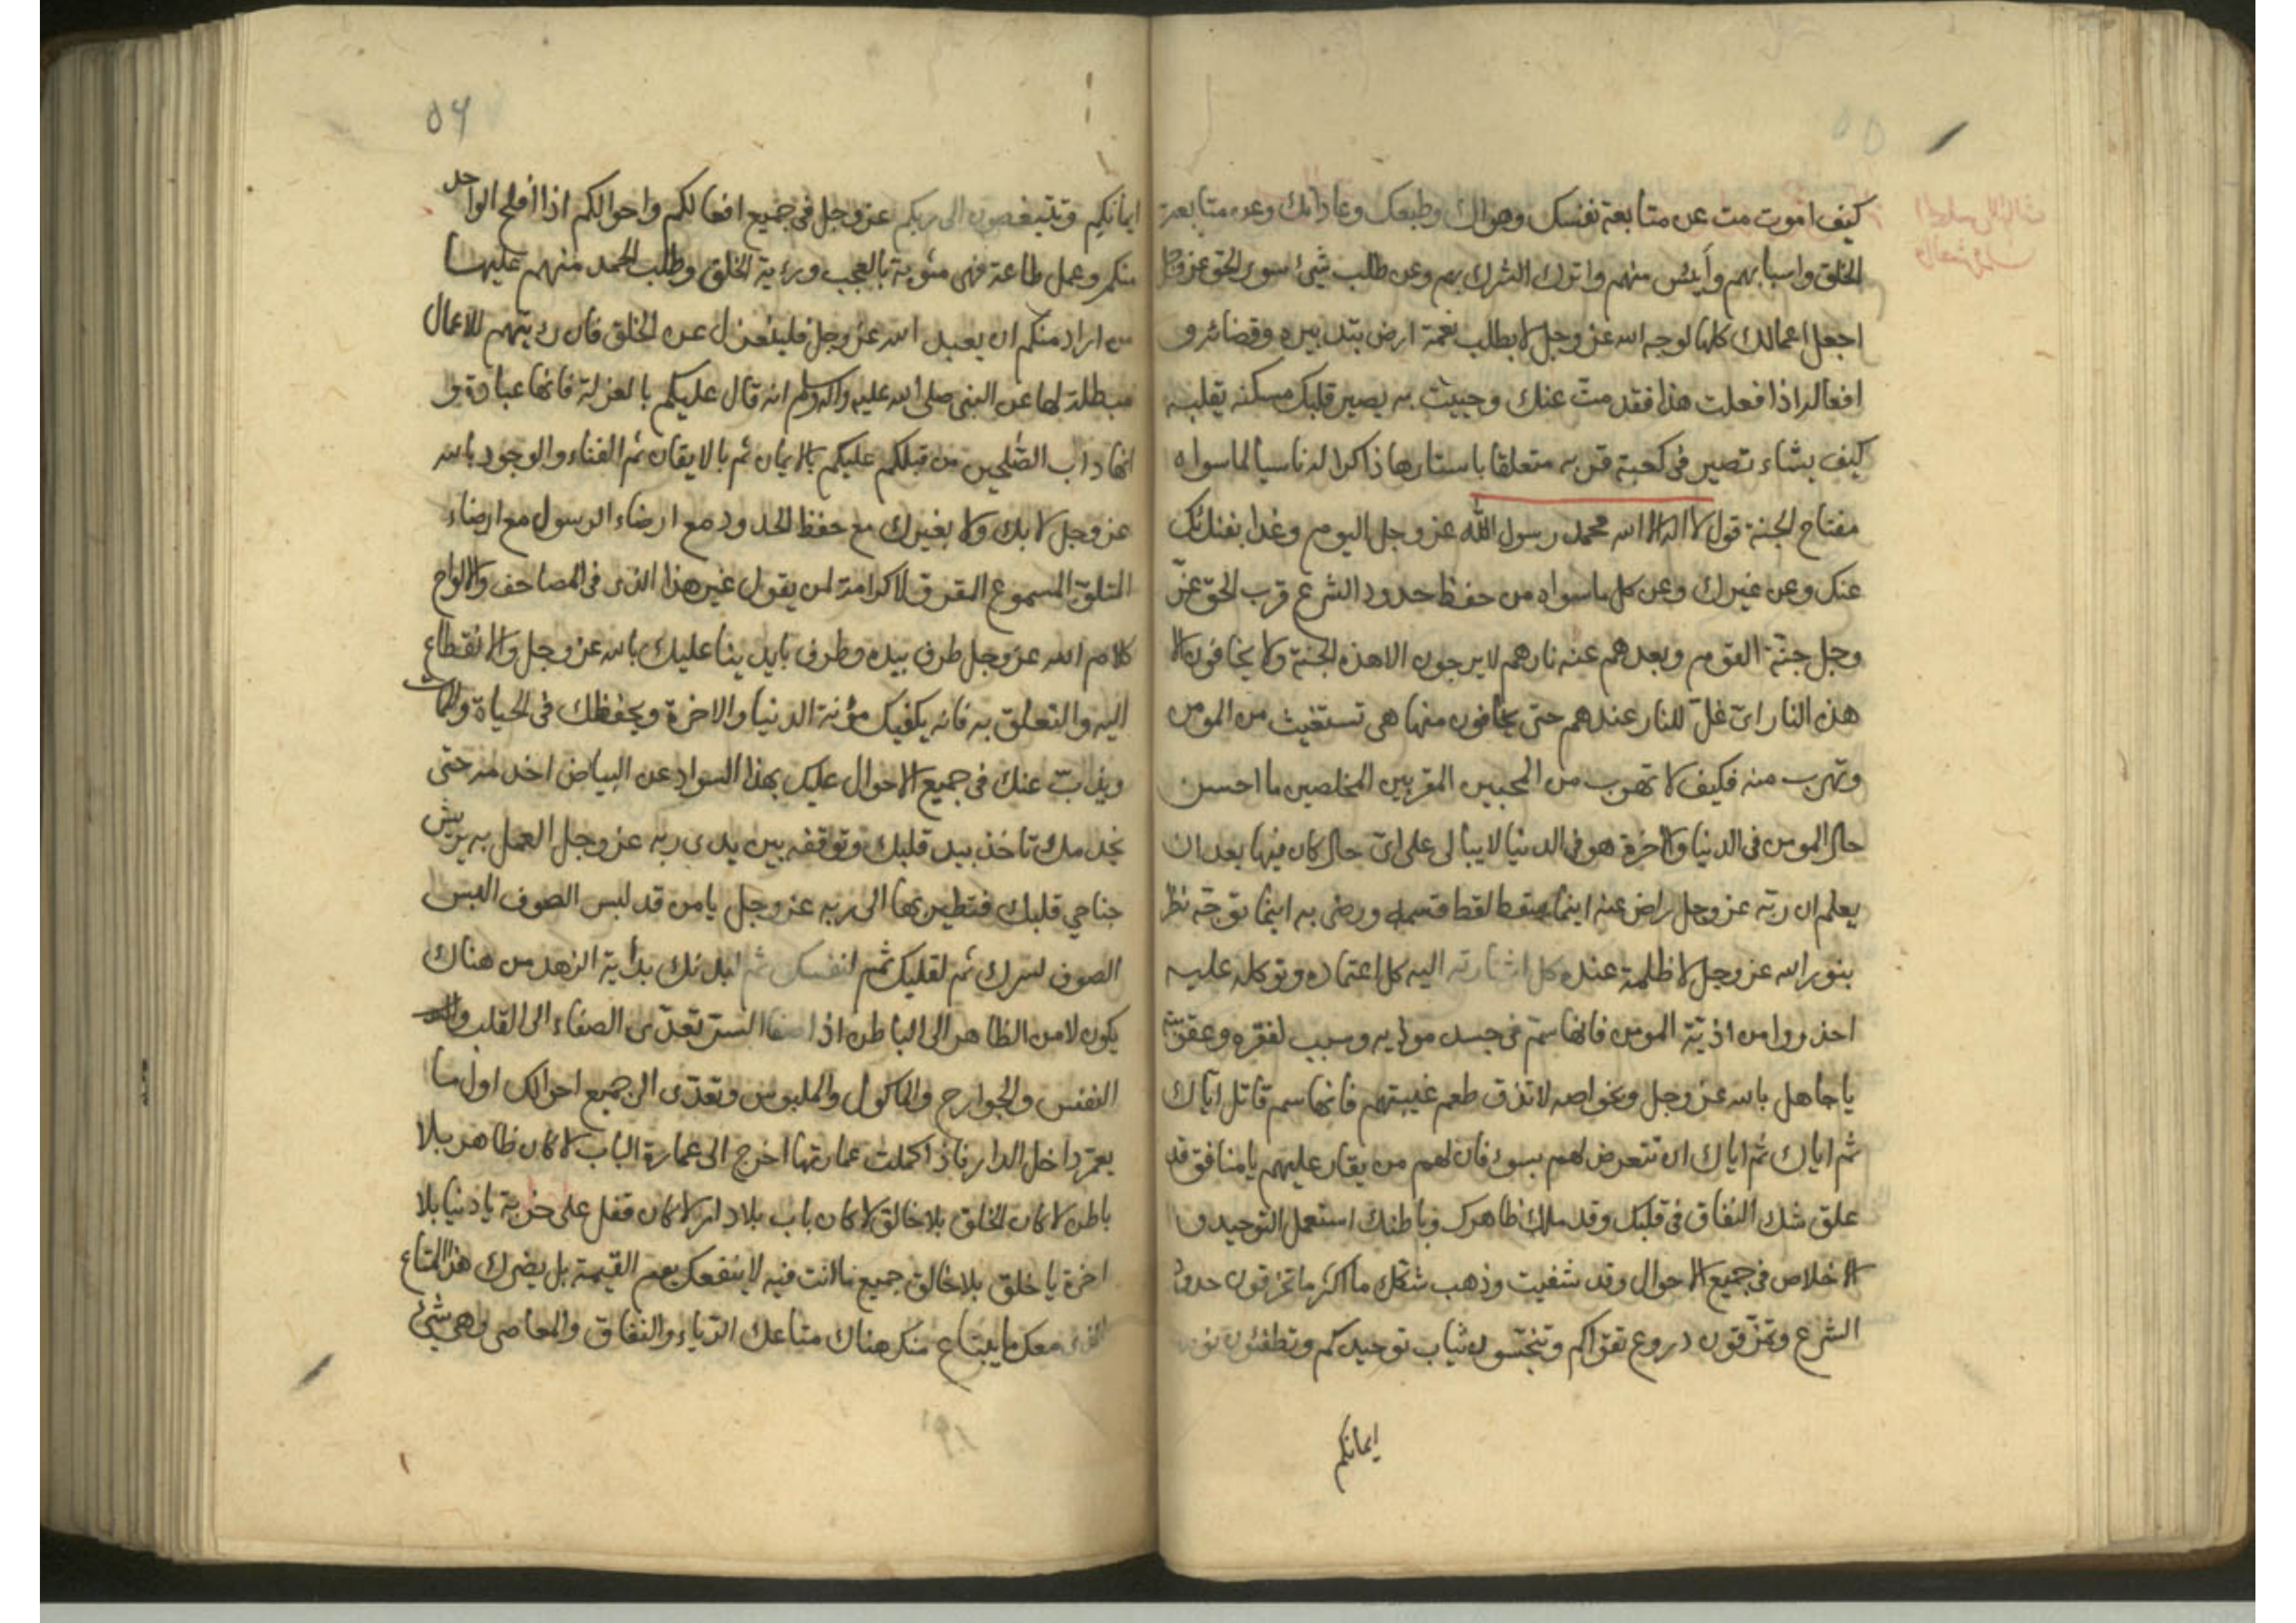 كيف اموت مت عن متابعة نفسك وهواك وطبعك وعاداتك وعن متابعة
الخلق واسبابهم وأيئس منهم واترك الشرك بهم وعن طلب شئ سوى الحق عز وجل
اجعل اعمالك كلها لوجه الله عز وجل لا بطلب نعمة ارض بتدبيره وقضائه و
افعاله اذا فعلت هذا فقد مت عنك وحييت به يصير قلبك مسكنه يقلبه
كيف يشاء تصير فى كعبة قربه متعلقا باستارها ذاكرا له ناسيا لما سواه
مفتاح الجنة قول لا اله الا الله محمد رسول الله عز وجل اليوم وغدا بفنائك
عنك وعن غيرك وعن كل ما سواه من حفظ حدود الشرع قرب الحق عز
وجل جنة القوم وبعدهم عنه نارهم لا يرجون الا هذه الجنة ولا يخافون الا
هذه النار اى غل للنار عندهم حتى يخافون منها هى تستغيث من المومن
وتهرب منه فكيف لا تهرب من المحبين المقربين المخلصين ما احسن
حال المومن فى الدنيا والاخرة هو فى الدنيا لا يبالى على اى حال كان فيها بعد ان
يعلم ان ربه عز وجل راض عنه اينما سقط لقط قسمه ورضى به اينما توجه نظر
بنور الله عز وجل لا ظلمة عنده كل اشارته اليه كل اعتماده وتوكله عليه
احذروا من اذية المومن فانها سم فى جسد موذيه وسبب لفقره وعقوبته
يا جاهل بالله عز وجل وبخواصه لا تذق طعم غيبتهم فانها سم قاتل اياك
ثم اياك ثم اياك ان تتعرض لهم بسوء فان لهم من يغار عليهم يا منافق قد
علق شك النفاق فى قلبك وقد ملك ظاهرك وباطنك استعمل التوحيد و
الاخلاص فى جميع الاحوال وقد شفيت وذهب شكك ما اكثر ما تخرقون حدود
الشرع وتمزقون دروع تقواكم وتنجسون ثياب توحيدكم وتطفئون نور
ايمانكم
٥٦
ايمانكم وتتبغضون الى ربكم عز وجل فى جميع افعالكم واحوالكم اذا افلح الواحد
منكم وعمل طاعة فهى مشوبة بالعجب ورؤية الخلق وطلب الحمد منهم عليها
من اراد منكم ان يعبد الله عز وجل فلينعزل عن الخلق فان رؤيتهم للاعمال
مبطلة لها عن النبى صلى الله عليه واله وسلم انه قال عليكم بالعزلة فانها عبادة و
انها داب الصلحين من قبلكم عليكم بالايمان ثم بالايقان ثم الفناء والوجود بالله
عز وجل لا بك ولا بغيرك مع حفظ الحدود مع ارضاء الرسول مع ارضاء
المتلو المسموع المقرو لا كرامة لمن يقول غير هذا الذى فى المصاحف والالواح
كلام الله عز وجل طرف بيده وطرف بايدينا عليك بالله عز وجل والانقطاع
اليه والتعلق به فانه يكفيك مؤنة الدنيا والاخرة ويحفظك فى الحياة والممات
ويذب عنك فى جميع الاحوال عليك بهذا السواد عن البياض اخدمه حتى
يخدمك تاخذ بيد قلبك وتوقفه بين يدى ربه عز وجل العمل به يريش
جناحي قلبك فتطير بها الى ربه عز وجل يا من قد لبس الصوف البس
الصوف لسرك ثم لقلبك ثم لنفسك ثم لبدنك بدأية الزهد من هناك
يكون لا من الظاهر الى الباطن اذا صفا السر تعدى الصفاء الى القلب
النفس والجوارح والماكول والملبوس وتعدى الى جميع احوالك اول ما
يعمر داخل الدار فاذا كملت عمارتها اخرج الى عمارة الباب لا كان ظاهر بلا
باطن لا كان الخلق بلا خالق لا كان باب بلا دار لا كان قفل على خربة يا دنيا بلا
اخرة يا خلق بلا خالق جميع ما انت فيه لا ينفعك يوم القيمة بل يضرك هذا المتاع
الذى معك ما يبتاع منك هناك متاعك الرياء والنفاق والمعاصى وهى شئ